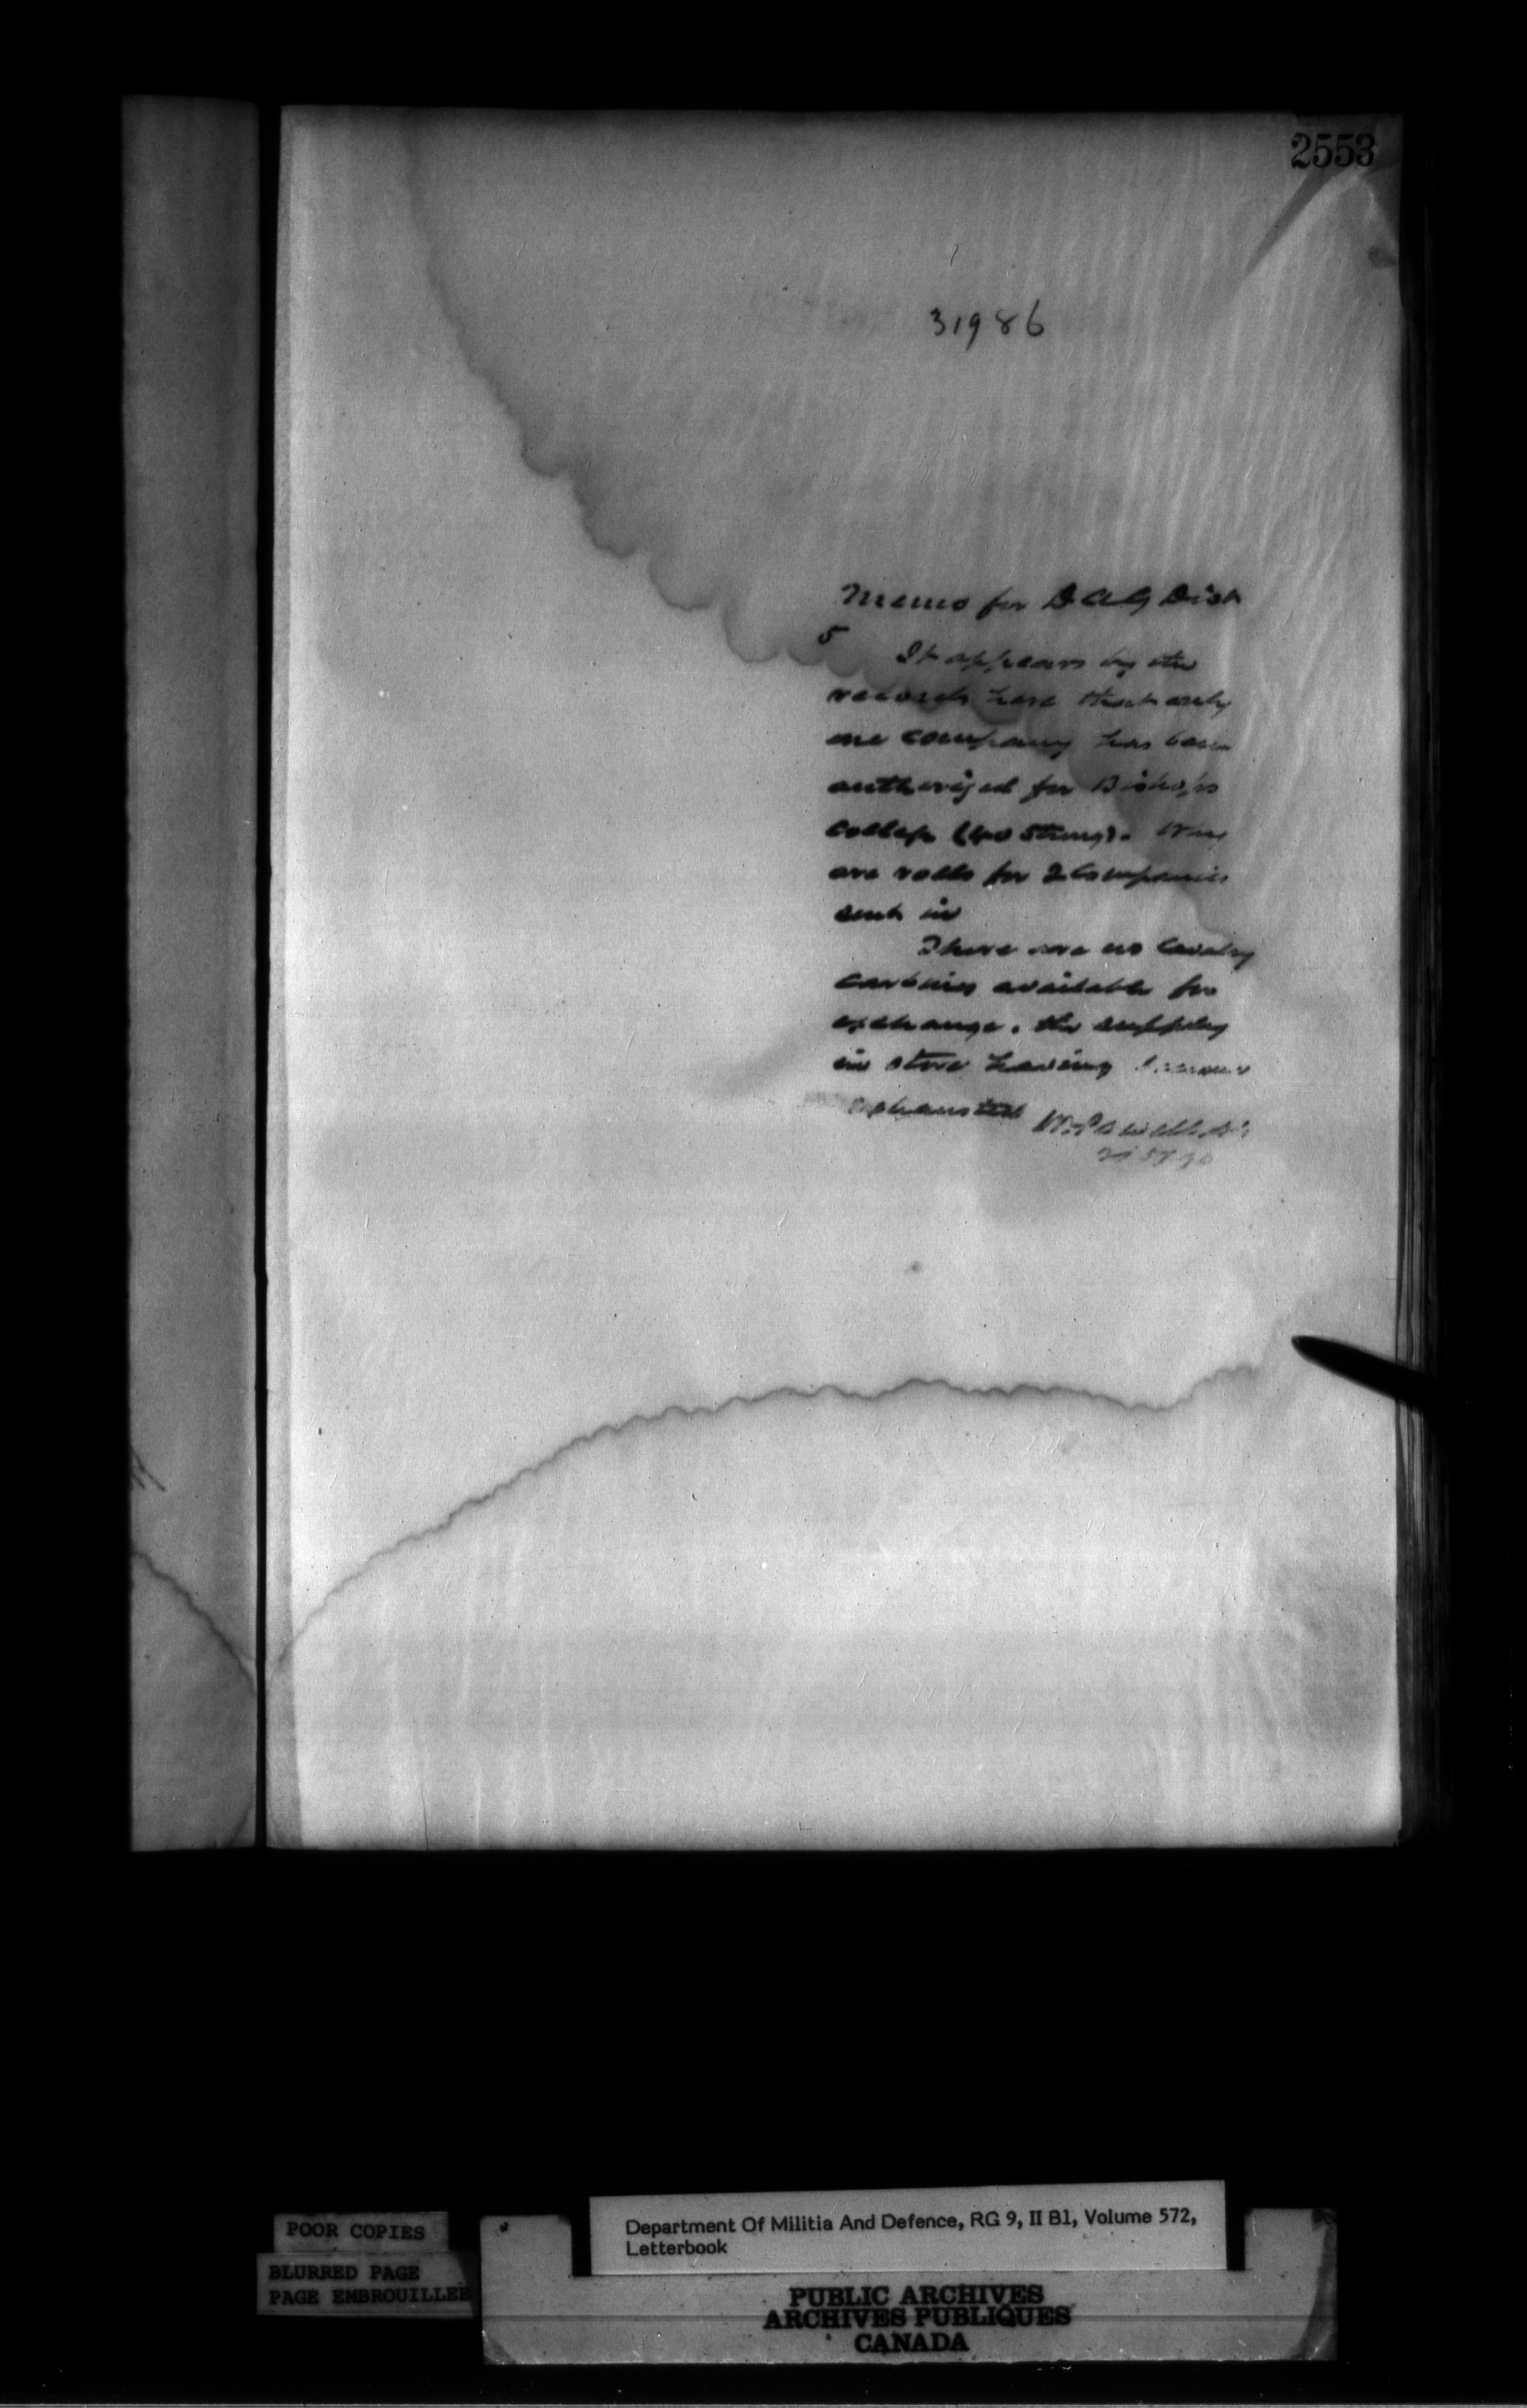 2553
31986
Memo for D A G Dist
5
It appears by the
records here that only
one company has been
authorized for Bishops
College (40 strong). Why
are rolls for 2 Companies
sent in
There are no Cavalry
carbines available for
exchange. the supply
in store having become
exhausted
W. Powell
POOR COPIES
BLURRED PAGE
PAGE EMBROUILLEE
Department Of Militia And Defence, RG 9, II B1, Volume 572,
Letterbook
PUBLIC ARCHIVES
ARCHIVES PUBLIQUES
CANADA